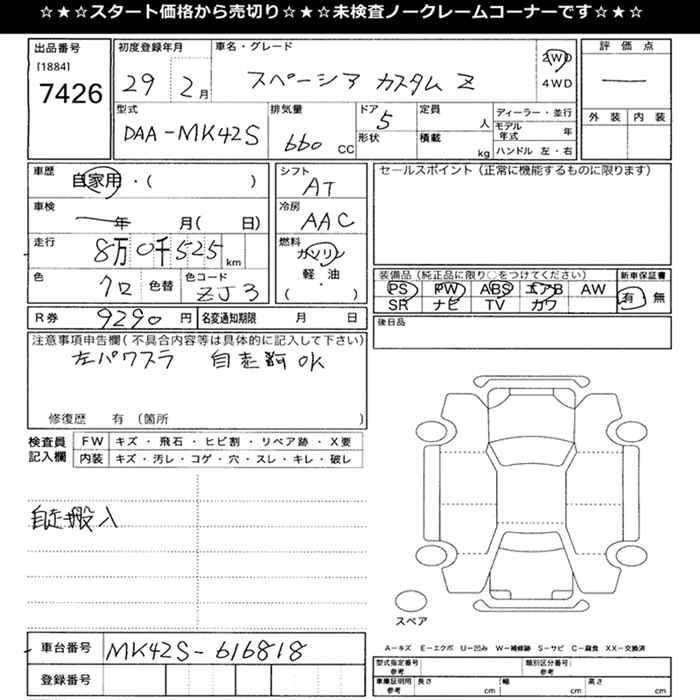 ☆★☆★スタート価格から売切り☆★☆★未検査ノークレームコーナーです☆★☆
出品番号 初度登録年月 車名・グレード 評価点
[1884] 7426 29 2月 スペーシア カスタム Z 2WD 4WD —
外装 内装
型式 排気量 ドア 定員 ディーラー・並行
DAA-MK42S 660 CC 5 人 モデル年式 年
形状 積載 kg ハンドル 左・右
車歴 自家用・( ) シフト AT セールスポイント(正常に機能するものに限ります)
車検 年 月( 日) 冷房 AAC
走行 8万0千525km 燃料 ガソリン
軽・油
( ・ )
色 クロ 色替 色コード ZJ3
装備品(純正品に限り○をつけてください) 新車保証書
PS PW ABS エアB AW 有 無
SR ナビ TV カワ
R券 9290円 名変通知期限 月 日 後日品
注意事項申告欄(不具合内容等は具体的に記入して下さい)
左パワスラ 自走可 OK
修復歴 有 (箇所 )
検査員記入欄 FW キズ・飛石・ヒビ割・リペア跡・X要
内装 キズ・汚レ・コゲ・穴・スレ・キレ・破レ
自走搬入
スペア
A-キズ E-エクボ U-凹み W-補修跡 S-サビ C-腐食 XX-交換済
車台番号 MK42S-616818
登録番号
型式指定番号 参考 類別区分番号 参考
車庫証明用 参考 長さ cm 幅 cm 高さ cm